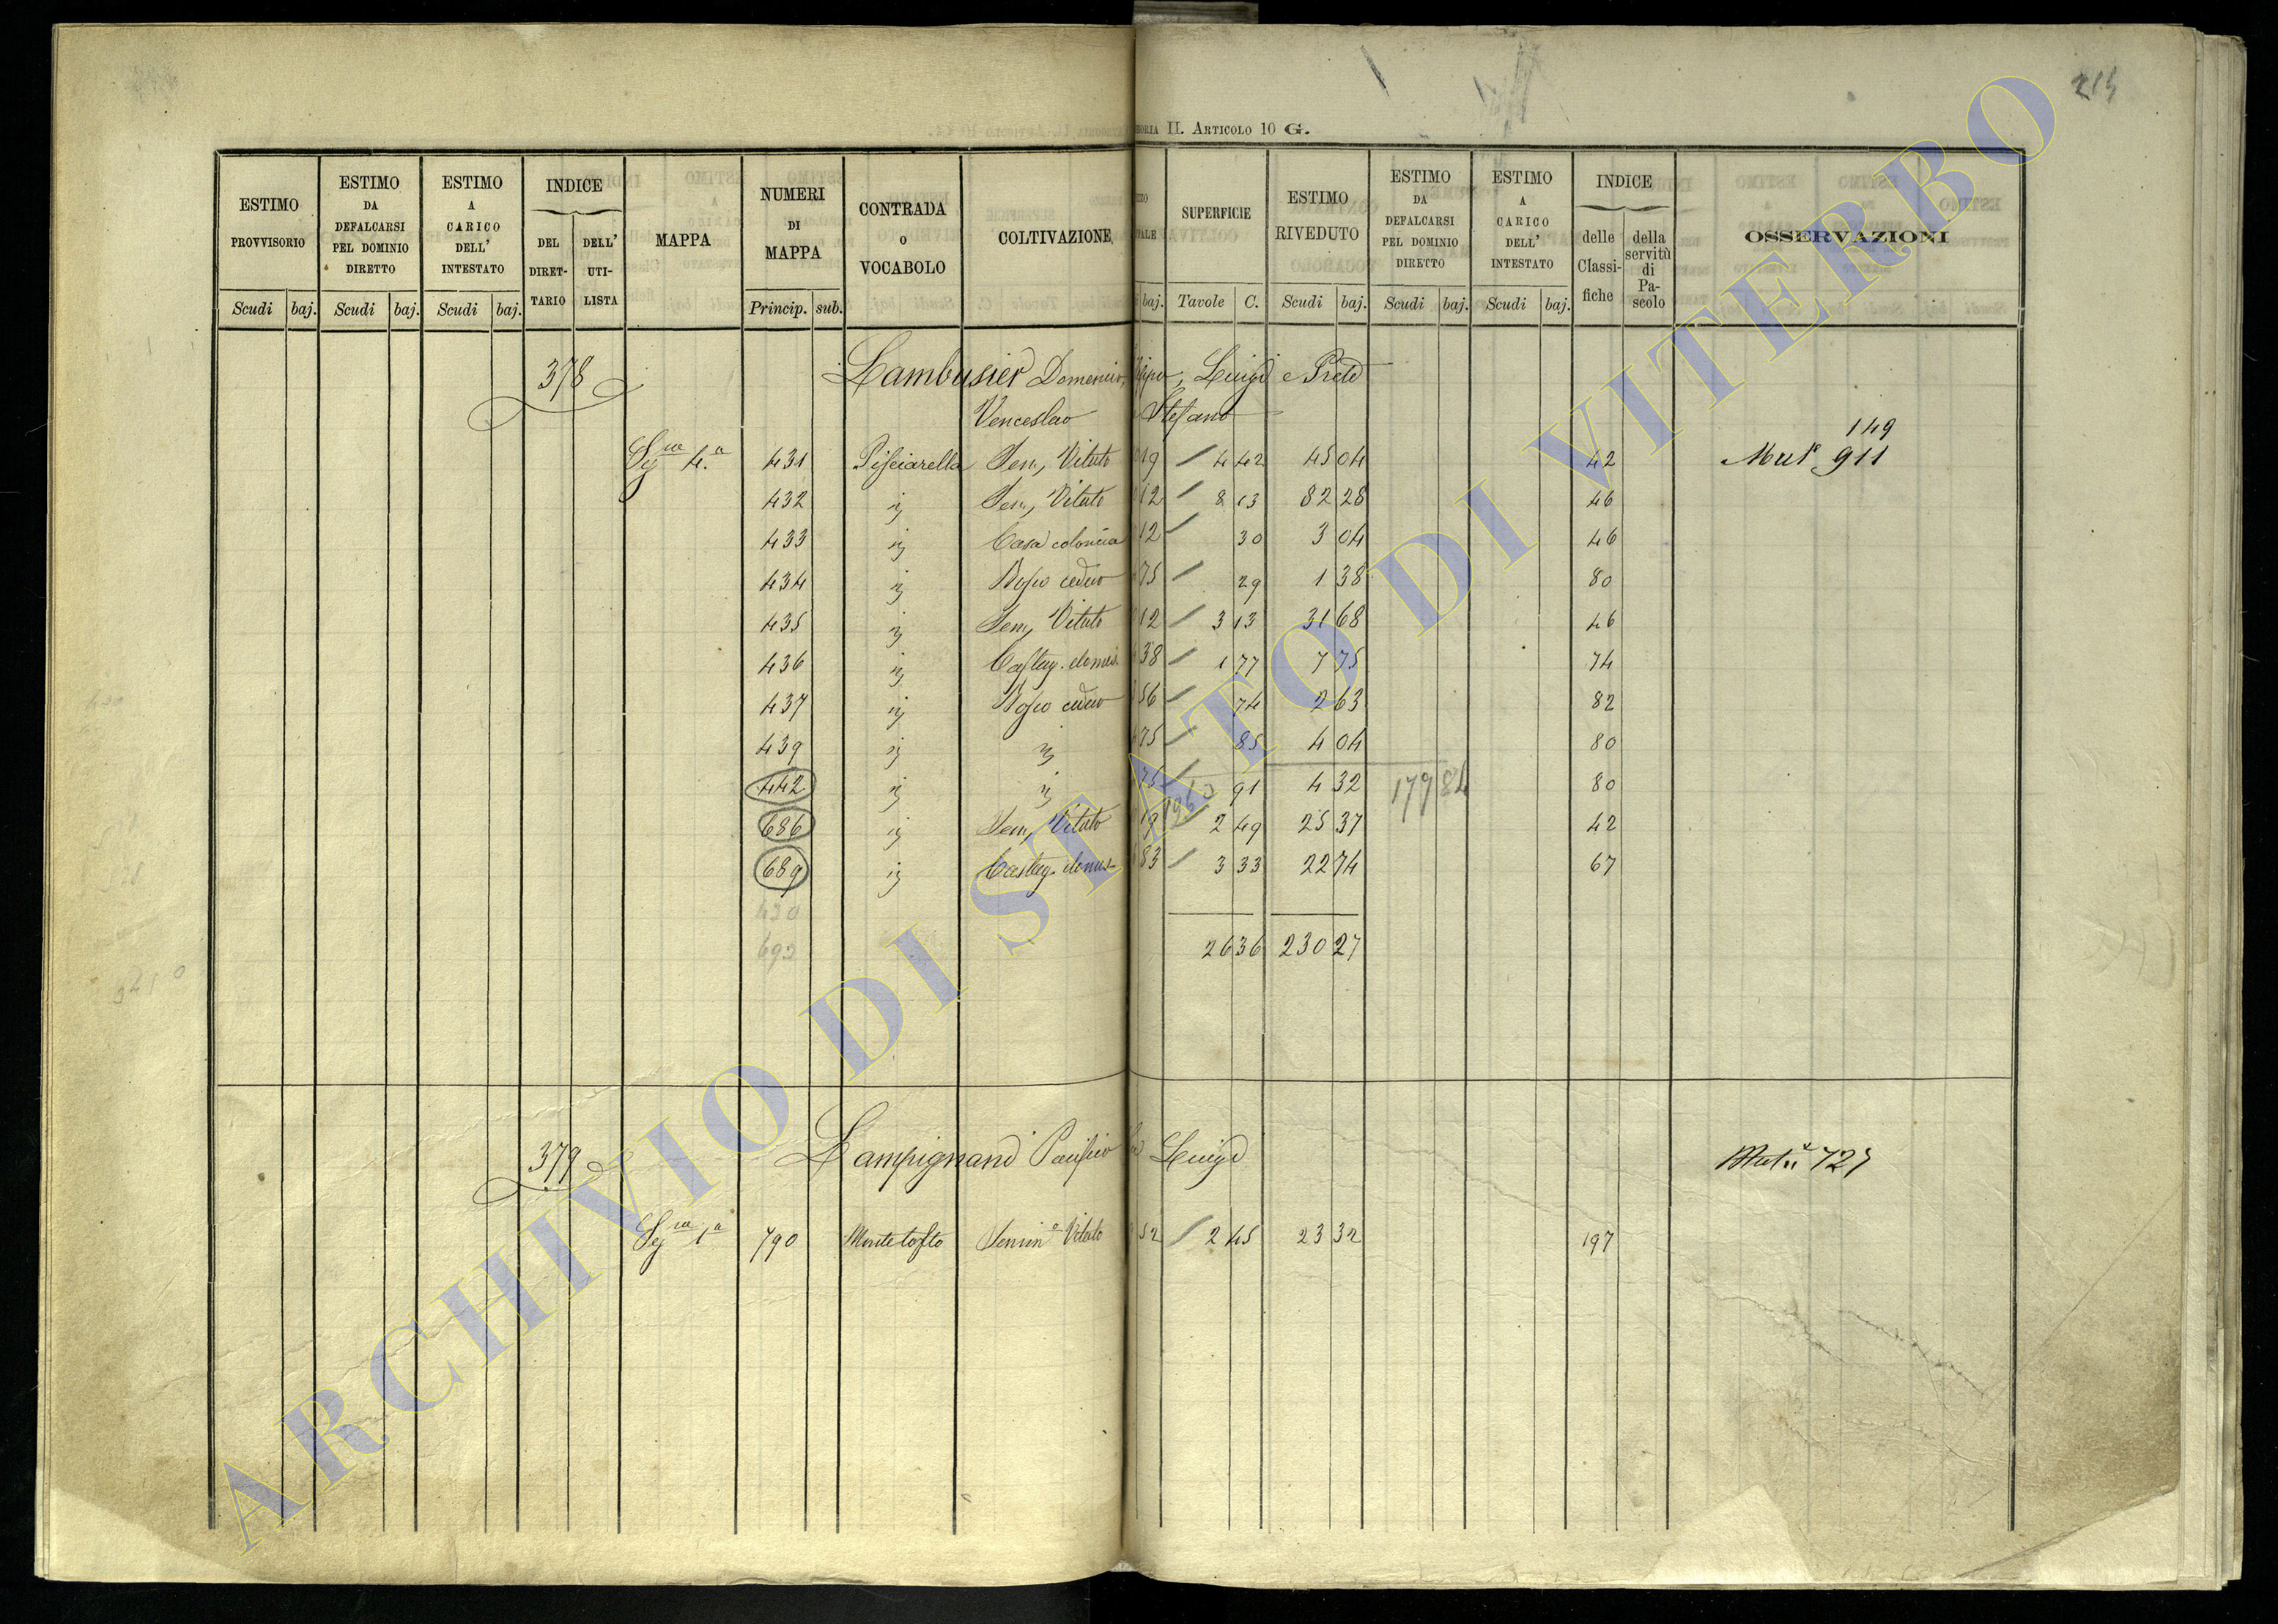 214
ORIA II. ARTICOLO 10 G.
ESTIMO PROVVISORIO | ESTIMO DA DEFALCARSI PEL DOMINIO DIRETTO | ESTIMO A CARICO DELL' INTESTATO | INDICE | MAPPA | NUMERI DI MAPPA | CONTRADA O VOCABOLO | COLTIVAZIONE | SUPERFICIE | ESTIMO RIVEDUTO | ESTIMO DA DEFALCARSI PEL DOMINIO DIRETTO | ESTIMO A CARICO DELL' INTESTATO | INDICE | OSSERVAZIONI
DEL DIRETTARIO | DELL' UTILISTA | delle Classifiche | della servitù di Pascolo
Scudi | baj. | Scudi | baj. | Scudi | baj. | Princip. | sub. | baj. | Tavole | C. | Scudi | baj. | Scudi | baj. | Scudi | baj.
378 Lambusier Domenico, Luigi e Prete
Venceslao Stefano
149
Sez 4.a 431 Pisciarella Sem, Vitato 19 4 42 45 04 42 Mut 911
432 ij Sem, Vitato 12 8 13 82 28 46
433 ij Casa colonica 12 30 3 04 46
434 ij Bosco ceduo 75 29 1 38 80
435 ij Sem, Vitato 12 3 13 31 68 46
436 ij Castag. domes. 38 1 77 7 75 74
437 ij Bosco ceduo 56 74 2 63 82
439 ij ij 75 85 4 04 80
442 ij ij 75 91 4 32 179 84 80
686 ij Sem, Vitato 19 2 49 25 37 42
689 ij Castag. domes 83 3 33 22 74 67
430
26 36 230 27
379 Lampignani Pacifico Luigi Mut. 727
1a 790 Montetosto Semin Vitato 52 2 45 23 32 197
ARCHIVIO DI STATO DI VITERBO